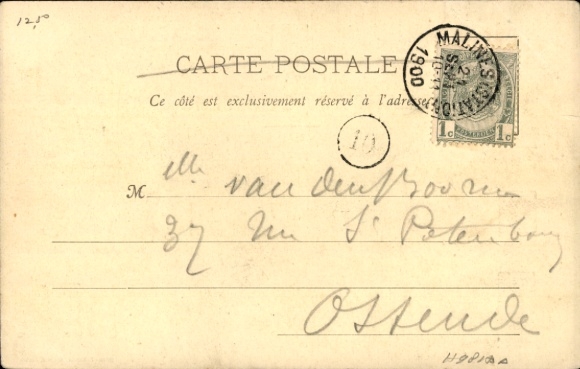 12,50
CARTE POSTALE
MALINES (STATION)
1900
Ce côté est exclusivement réservé à l'adresse
1c 1c
M elle van den
37 rue St Petersbourg
Ostende